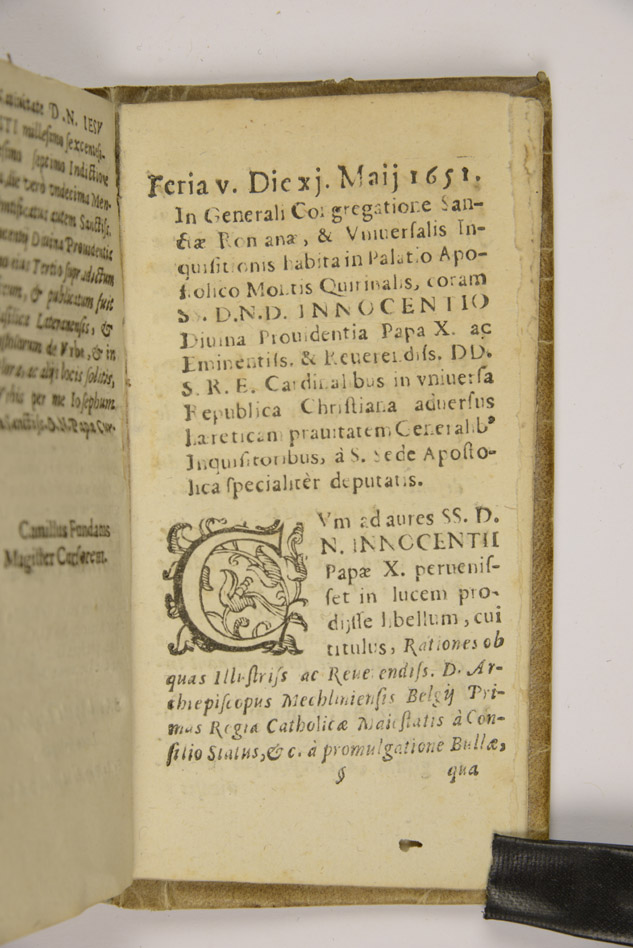 D. N. IESV
STI millesimo sexcentes-
septimo Indictione
die vero vndecima Men-
autem Sanctiss.
Diuina Prouidentia
eius Tertio supradictum
& publicatum fuit
Lateranensis, &
de Vrbe, & in
ac alijs locis solitis,
Vrbis per me Iosephum
D.N. Papæ Cur-
Camillus Fundatis
Magister Cursorum.
Feria v. Die xj. Maij 1651.
In Generali Congregatione San-
ctæ Romanæ, & Vniuersalis In-
quisitionis habita in Palatio Apo-
stolico Montis Quirinalis, coram
SS. D.N.D. INNOCENTIO
Diuina Prouidentia Papa X. ac
Eminentiss. & Reuerendiss. DD.
S. R. E. Cardinalibus in vniuersa
Republica Christiana aduersus
hæreticam prauitatem Generalib⁹
Inquisitoribus, à S. Sede Aposto-
lica specialitèr deputatis.
CVm ad aures SS. D.
N. INNOCENTII
Papæ X. peruenis-
set in lucem pro-
dijsse libellum, cui
titulus, Rationes ob
quas Illustriss ac Reuerendiss. D. Ar-
chiepiscopus Mechliniensis Belgij Pri-
mas Regiæ Catholicæ Maiestatis à Con-
silio Status, & c. à promulgatione Bullæ,
§ qua